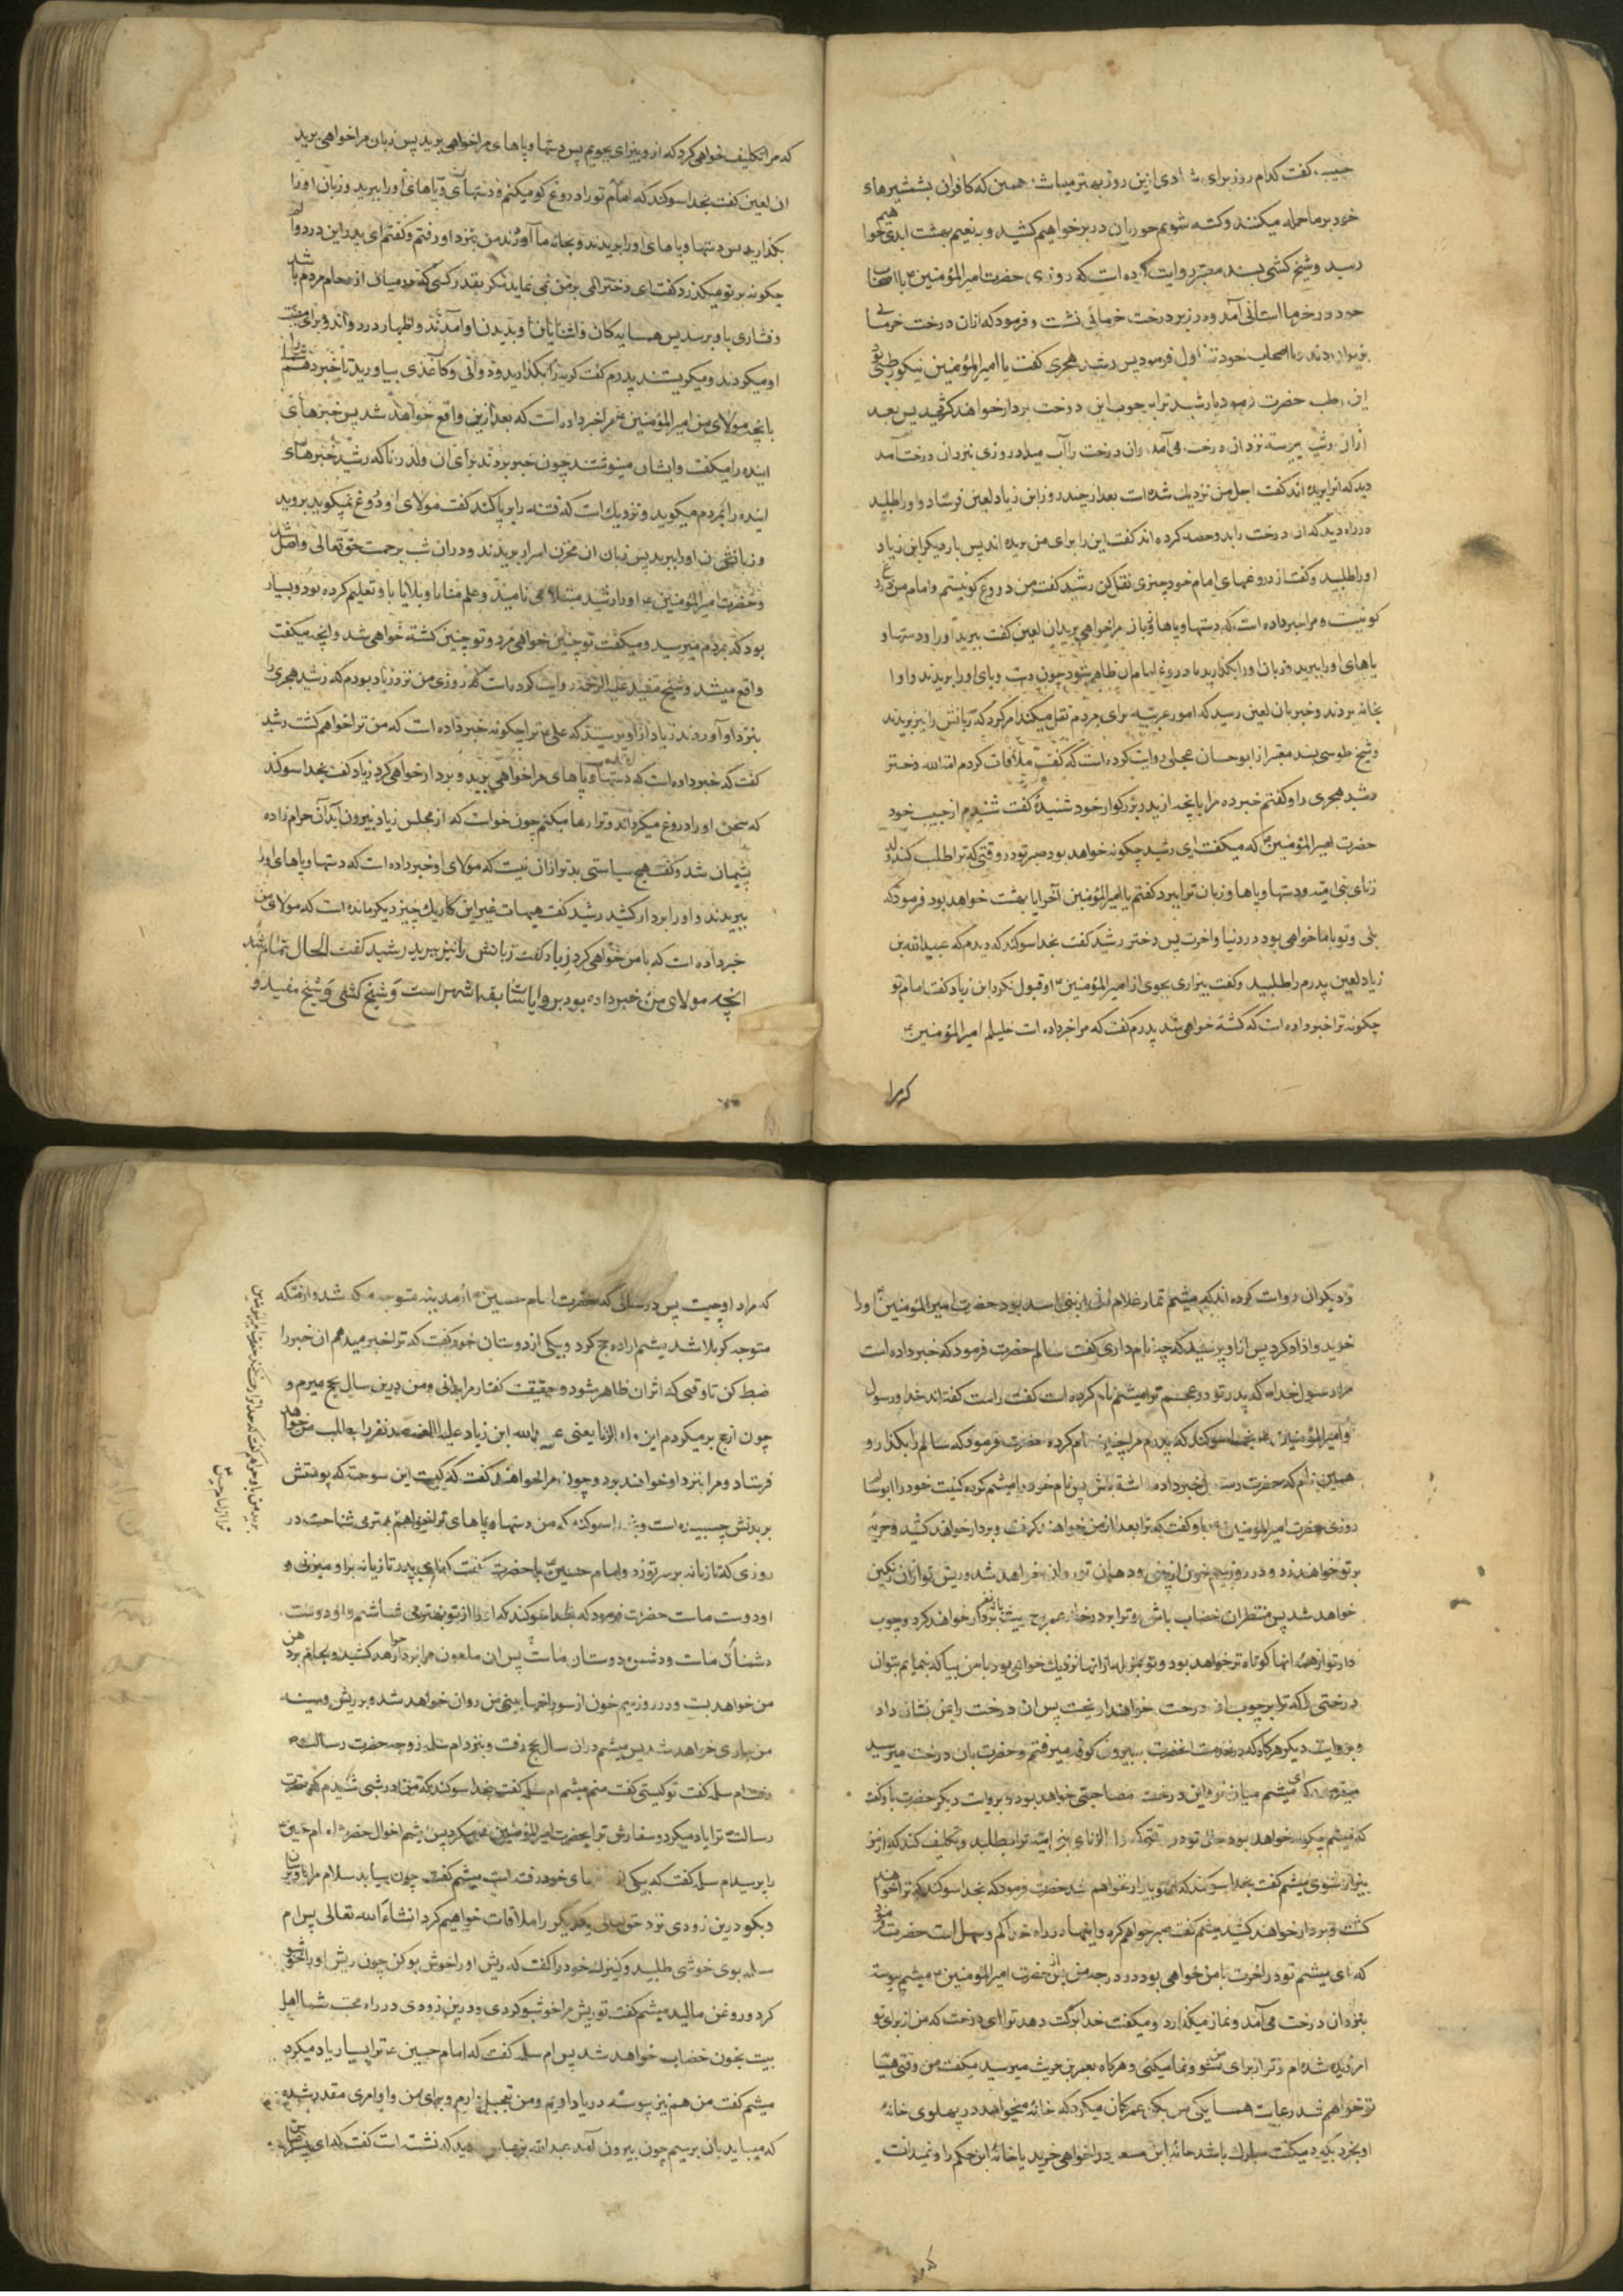 حبیب گفت کدام روز برای شادی ازین روز بهتر میباشد همین که کافران بشمشیرهای
خود بر ما حمله میکنند و کشته شویم حوریان در بر خواهیم کشید و به نعیم بهشت ابدی خواهیم
رسید و شیخ کشی بسند معتبر روایت کرده است که روزی حضرت امیرالمؤمنین با اصحاب
خود در خرماستانی آمد و در زیر درخت خرمائی نشست و فرمود که ازان درخت خرمائی
بزیر آوردند و با اصحاب خود تناول فرمود پس رشید هجری گفت یا امیرالمؤمنین نیکو رطبی بود
این رطب حضرت فرمود یا رشید ترا بچوب این درخت بردار خواهند کشید پس بعد
ازان رشید پیوسته نزد ان درخت می آمد و ان درخت را آب میداد روزی بنزد ان درخت آمد
دید که انرا بریده اند گفت اجل من نزدیک شده است بعد از چند روز ابن زیاد لعین فرستاد و او را طلبید
در راه دید که ان درخت را بدو حصه کرده اند گفت این را برای من بریده اند پس بار دیگر ابن زیاد
او را طلبید و گفت از دروغهای امام خود چیزی نقل کن رشید گفت من دروغ گو نیستم و امام من دروغ
گو نیست و مرا خبر داده است که دستها و پاها و زبان مرا خواهی برید ان لعین گفت ببرید او را و دستها و
پاهای او را ببرید و زبان او را بگذارید تا دروغ امام ان ظاهر شود چون دست و پای او را بریدند و او را
بخانه بردند و خبر بان لعین رسید که امور غریبه برای مردم نقل میکند امر کرد که زبانش را نیز بریدند
و شیخ طوسی بسند معتبر از ابو حسان عجلی روایت کرده است که گفت ملاقات کردم امة الله دختر
رشید هجری را و گفتم خبر ده مرا بانچه از پدر بزرگوار خود شنیدهٔ گفت شنیدم از حبیب خود
حضرت امیرالمؤمنین که میگفت ای رشید چگونه خواهد بود صبر تو در وقتی که ترا طلب کند ولد
زنای بنی امیه و دستها و پاها و زبان ترا ببرد گفتم یا امیرالمؤمنین آخر ایا بهشت خواهد بود فرمود که
بلی و تو با ما خواهی بود در دنیا و اخرت پس دختر رشید گفت بخدا سوگند که دیدم که عبیدالله بن
زیاد لعین پدرم را طلبید و گفت بیزاری بجوی از امیرالمؤمنین او قبول نکرد ابن زیاد گفت امام تو
چگونه ترا خبر داده است که کشته خواهی شد پدرم گفت که مرا خبر داده است خلیلم امیرالمؤمنین
که مرا
که مرا تکلیف خواهی کرد که از و بیزاری بجویم پس دستها و پاهای مرا خواهی برید پس زبان مرا خواهی برید
ان لعین گفت بخدا سوگند که امام تو را دروغ گو میکنم و دستها و پاهای او را ببرید و زبان او را
بگذارید پس دستها و پاهای او را بریدند و بخانه ما آوردند من بنزد او رفتم و گفتم ای پدر این درد و الم
چگونه بر تو میگذرد گفت ای دختر المی بر من نمی نماید مگر بقدر کسی که در میان ازدحام مردم باشد
و فشاری باو برسد پس همسایه گان و اشنایان بدیدن او آمدند و اظهار درد و اندوه برای مصیبت
او میکردند و میگریستند پدرم گفت گریه را بگذارید و دواتی و کاغذی بیاورید تا خبر دهم شما را
بانچه مولای من امیرالمؤمنین مرا خبر داده است که بعد ازین واقع خواهد شد پس خبرهای
اینده را میگفت و ایشان مینوشتند چون خبر بردند برای ان ولد زنا که رشید خبرهای
اینده را بمردم میگوید و نزدیک است که فتنه را برپا کند گفت مولای او دروغ نمیگوید بروید
و زبانش را ببرید پس زبان ان مخزن اسرار بریدند و دران شب برحمت حق تعالی واصل شد
و حضرت امیرالمؤمنین او را رشید مبتلا می نامید و علم منایا و بلایا باو تعلیم کرده بود و بسیار
بود که بمردم میرسید و میگفت تو چنین خواهی مرد و تو چنین کشته خواهی شد و انچه میگفت
واقع میشد و شیخ مفید علیه الرحمه روایت کرده است که روزی من نزد زیاد بودم که رشید هجری را
بنزد او آوردند زیاد از او پرسید که علی ترا چگونه خبر داده است که من ترا خواهم کشت رشید
گفت که خبر داده است که دستها و پاهای مرا خواهی برید و بردار خواهی کرد زیاد گفت بخدا سوگند
که سخن او را دروغ میگردانم و ترا رها میکنم چون خواست که از مجلس زیاد بیرون آید آن حرام زاده
پشیمان شد و گفت هیچ سیاستی بدتر ازان نیست که مولای او خبر داده است که دستها و پاهای او را
ببریدند و او را بردار کشد رشید گفت هیهات غیر این کار یک چیز دیگر مانده است که مولای من
خبر داده است که با من خواهی کرد زیاد گفت زبانش را نیز ببرید رشید گفت الحال تمام شد
انچه مولای من خبر داده بود بروایات سابقه اشهر است و شیخ کشی و شیخ مفید و
و دیگران روایت کرده اند که میثم تمار غلام زنی از بنی اسد بود حضرت امیرالمؤمنین او را
خرید و ازاد کرد پس از او پرسید که چه نام داری گفت سالم حضرت فرمود که خبر داده است
مرا رسول خدا که پدر تو در عجم ترا میثم نام کرده است گفت راست گفته اند خدا و رسول
و امیرالمؤمنین بخدا سوگند که پدرم مرا چنین نام کرده حضرت فرمود که سالم را بگذار و
همین نام که حضرت رسول خبر داده داشته باش پس نام خود را میثم کرد و کنیت خود را ابو سالم
روزی حضرت امیرالمؤمنین باو گفت که ترا بعد از من خواهند گرفت و بردار خواهند کشید و حربهٔ
بر تو خواهند زد و در روز سیم خون از بینی و دهان تو روان خواهد شد و ریش تو ازان رنگین
خواهد شد پس منتظر ان خضاب باش و ترا بر در خانه عمرو بن حریث با نه نفر بردار خواهند کرد و چوب
دار تو از همه انها کوتاه تر خواهد بود و تو بمنزله از انها نزدیک خواهی بود با من بیا که بنمایم بتو ان
درختی را که ترا بر چوب ان درخت خواهند اویخت پس ان درخت را بمن نشان داد
و بروایت دیگر هرگاه که در خدمت انحضرت ببیرون کوفه میرفتم و حضرت بان درخت میرسید
میفرمود که ای میثم میان تو و این درخت مصاحبتی خواهد بود و بروایت دیگر حضرت باو گفت
که میثم چگونه خواهد بود حال تو در وقتی که ولد الزنای بنی امیه ترا بطلبد و تکلیف کند که از من
بیزار شوی میثم گفت بخدا سوگند که از تو بیزار نخواهم شد حضرت فرمود که بخدا سوگند که ترا خواهند
کشت و بردار خواهند کشید میثم گفت صبر خواهم کرد و اینها در راه خدا کم و سهل است حضرت فرمود
که ای میثم تو در اخرت با من خواهی بود در درجه من پس بعد از حضرت امیرالمؤمنین میثم پیوسته
بنزد ان درخت می آمد و نماز میگذارد و میگفت خدا برکت دهد ترا ای درخت که من از برای تو
افریده شده ام و تو از برای من نشو و نما میکنی و هرگاه بعمرو بن حریث میرسید میگفت من وقتی همسایهٔ
تو خواهم شد رعایت همسایگی من بکن عمرو گمان میکرد که خانهٔ میخواهد در پهلوی خانهٔ
او بخرد میگفت مبارک باشد خانهٔ ابن مسعود را خواهی خرید یا خانهٔ ابن حکم را و نمیدانست
که مراد او چیست پس در سالی که حضرت امام حسین از مدینه متوجه مکه شد و از مکه
متوجه کربلا شد میثم اراده حج کرد و بیکی از دوستان خود گفت که ترا خبر میدهم ان خبر را
ضبط کن تا وقتی که اثر ان ظاهر شود و حقیقت گفتار مرا بدانی و من درین سال بحج میروم و
چون از حج بر میگردم این ولد الزنا یعنی عبیدالله ابن زیاد علیه اللعنه صد نفر را بطلب من خواهد
فرستاد و مرا بنزد او خواهند برد و چون مرا خواهند گفت که کیست این سوخته که پوستش
بر بدنش چسبیده است و بخدا سوگند که من دستها و پاهای ترا خواهم بهتر می شناخت در
روزی که تازیانه بر سر تو زد و امام حسین با حضرت گفت که ای پدر تازیانه براو میزنی و
او دوست ماست حضرت فرمود که بخدا سوگند که او را از تو بهتر می شناسم و او دوست
دشمنان ماست و دشمن دوستان ماست پس ان ملعون مرا بردار خواهد کشید و لجام بر دهن
من خواهد بست و در روز سیم خون از سوراخهای بینی من روان خواهد شد و بر ریش و سینه
من جاری خواهد شد پس میثم دران سال بحج رفت و بنزد ام سلمه زوجه حضرت رسالت
رفت ام سلمه گفت تو کیستی گفت منم میثم ام سلمه گفت بخدا سوگند که من در شبی شنیدم که حضرت
رسالت ترا یاد میکرد و سفارش ترا بحضرت امیرالمؤمنین میکرد پس میثم احوال حضرت امام حسین
را پرسید ام سلمه گفت که بیکی از باغهای خود رفته است میثم گفت چون بیاید سلام مرا باو برسان
و بگو درین زودی نزد حق تعالی یکدیگر را ملاقات خواهیم کرد انشاء الله تعالی پس ام
سلمه بوی خوشی طلبید و کنیزک خود را گفت که ریش او را خوش بو کن چون ریش او را خوشبو
کرد و روغن مالید میثم گفت تو ریش مرا خوشبو کردی و درین زودی در راه محبت شما اهل
بیت بخون خضاب خواهد شد پس ام سلمه گفت که امام حسین ترا بسیار یاد میکرد
میثم گفت من هم نیز پیوسته در یاد اویم و من تعجیل دارم و برای من و او امری مقدر شده
که میباید بان برسیم چون بیرون آمد عبدالله بن عباس دید که نشسته است گفت که ای پسر عباس